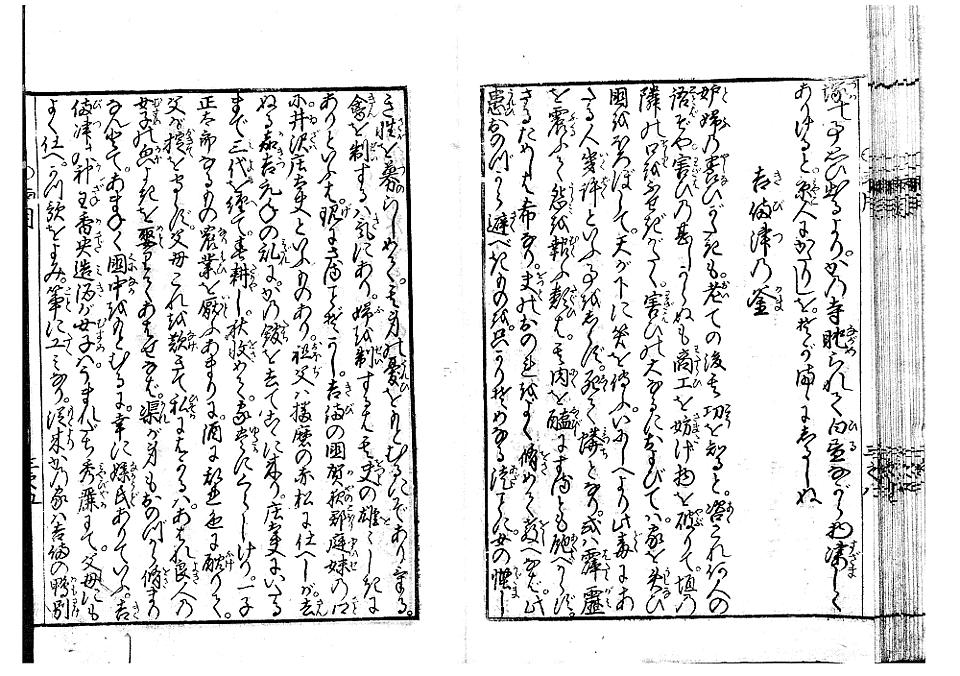 塚の事思ひ出るより。かの寺眺られて白昼ながら物凄しく
ありけると。京人にかたりしを。そがまゝにしるしぬ
吉備津の釜
妬婦の養ひがたきも。老ての後其功を知ると。咨これ何人の
語ぞや。害ひの甚しからぬも商工を妨げ物を破りて。垣の
隣の口をふせぎがたく。害ひの大なるにおよびては。家を失ひ
国をほろぼして。天が下に笑を伝ふ。いにしへより此毒にあ
たる人幾許といふ事をしらず。死て蟒となり。或は霹靂
を震ふて怨を報ふ類は。其肉を醢にするとも飽べからず。
さるためしは希なり。夫のおのれをよく脩めて教へなば。此
患おのづから避べきものを。只かりそめなる徒ことに。女の慳し
き性を募らしめて。其身の憂をもとむるにぞありける。
禽を制するは気にあり。婦を制するは其夫の雄々しきに
ありといふは。現にさることぞかし。吉備の国賀夜郡庭妹の郷
に井沢庄太夫といふものあり。祖父は播磨の赤松に仕へしが。去
ぬる嘉吉元年の乱に。かの館を去てこゝに来り。庄太夫にいたる
まで三代を経て。春耕し。秋収めて。家豊にくらしけり。一子
正太郎なるもの農業を厭ふあまりに。酒に乱れ色に酖りて。
父が掟を守らず。父母これを歎きて私にはかるは。あはれ良人の
女子の㒵よきを娶りてあはせなば。渠が身もおのづから脩まり
なんとて。あまねく国中をもとむるに。幸に媒氏ありていふ。吉
備津の神主香央造酒が女子は。うまれだち秀麗にて。父母にも
よく仕へ。かつ歌をよみ。箏に工みなり。従来かの家は吉備の鴨別